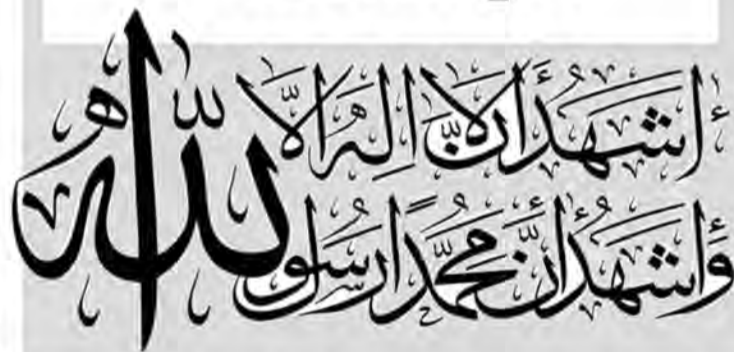 أشهد أن لا اله الا الله
وأشهد أن محمدا رسول الله